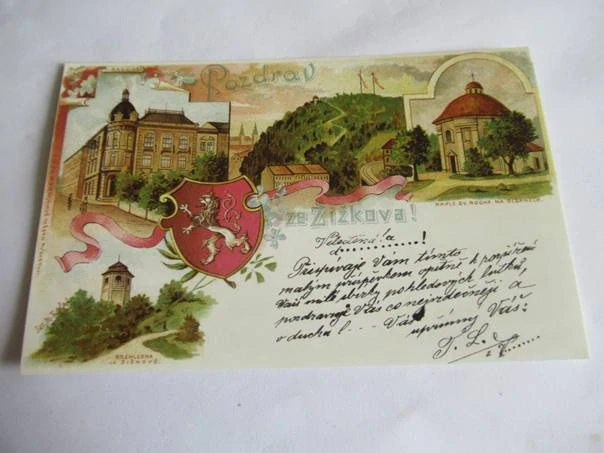 Pozdrav
ze Žižkova!
KAPLE SV. ROCHA NA OLŠANECH.
ROZHLEDNA
NA ŽIŽKOVĚ.
Velectěná!
Přispívaje Vám tímto
malým příspěvkem opětně k rozšíření
Vaší milé sbírky pohledových lístků,
pozdravuje Vás co nejsrdečněji a
v duchu!... Váš
upřímný Váš:
J. L.